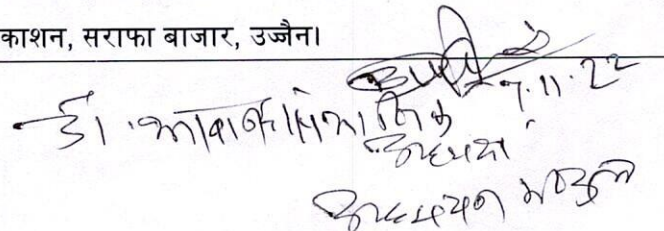 काशन, सराफा बाजार, उज्जैन।
7.11.22
डॉ.
अध्यक्ष
अध्ययन मण्डल